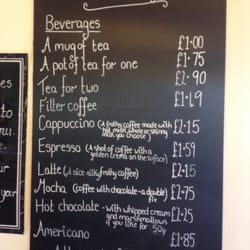 Beverages
A mug of tea £1.00
A pot of tea for one £1.75
Tea for two £2.90
Filter coffee £1.69
Cappuccino (A frothy coffee made with £2.15
hot milk whole or skinny
milk you choose)
Espresso (A shot of coffee with a £1.59
golden crema on the surface)
Latte (A nice milky frothy coffee) £2.15
Mocha (Coffee with chocolate - a double £1.75
fix)
Hot chocolate - with whipped cream £2.25
and marshmallows
if you like for 50p
Americano £1.85
your